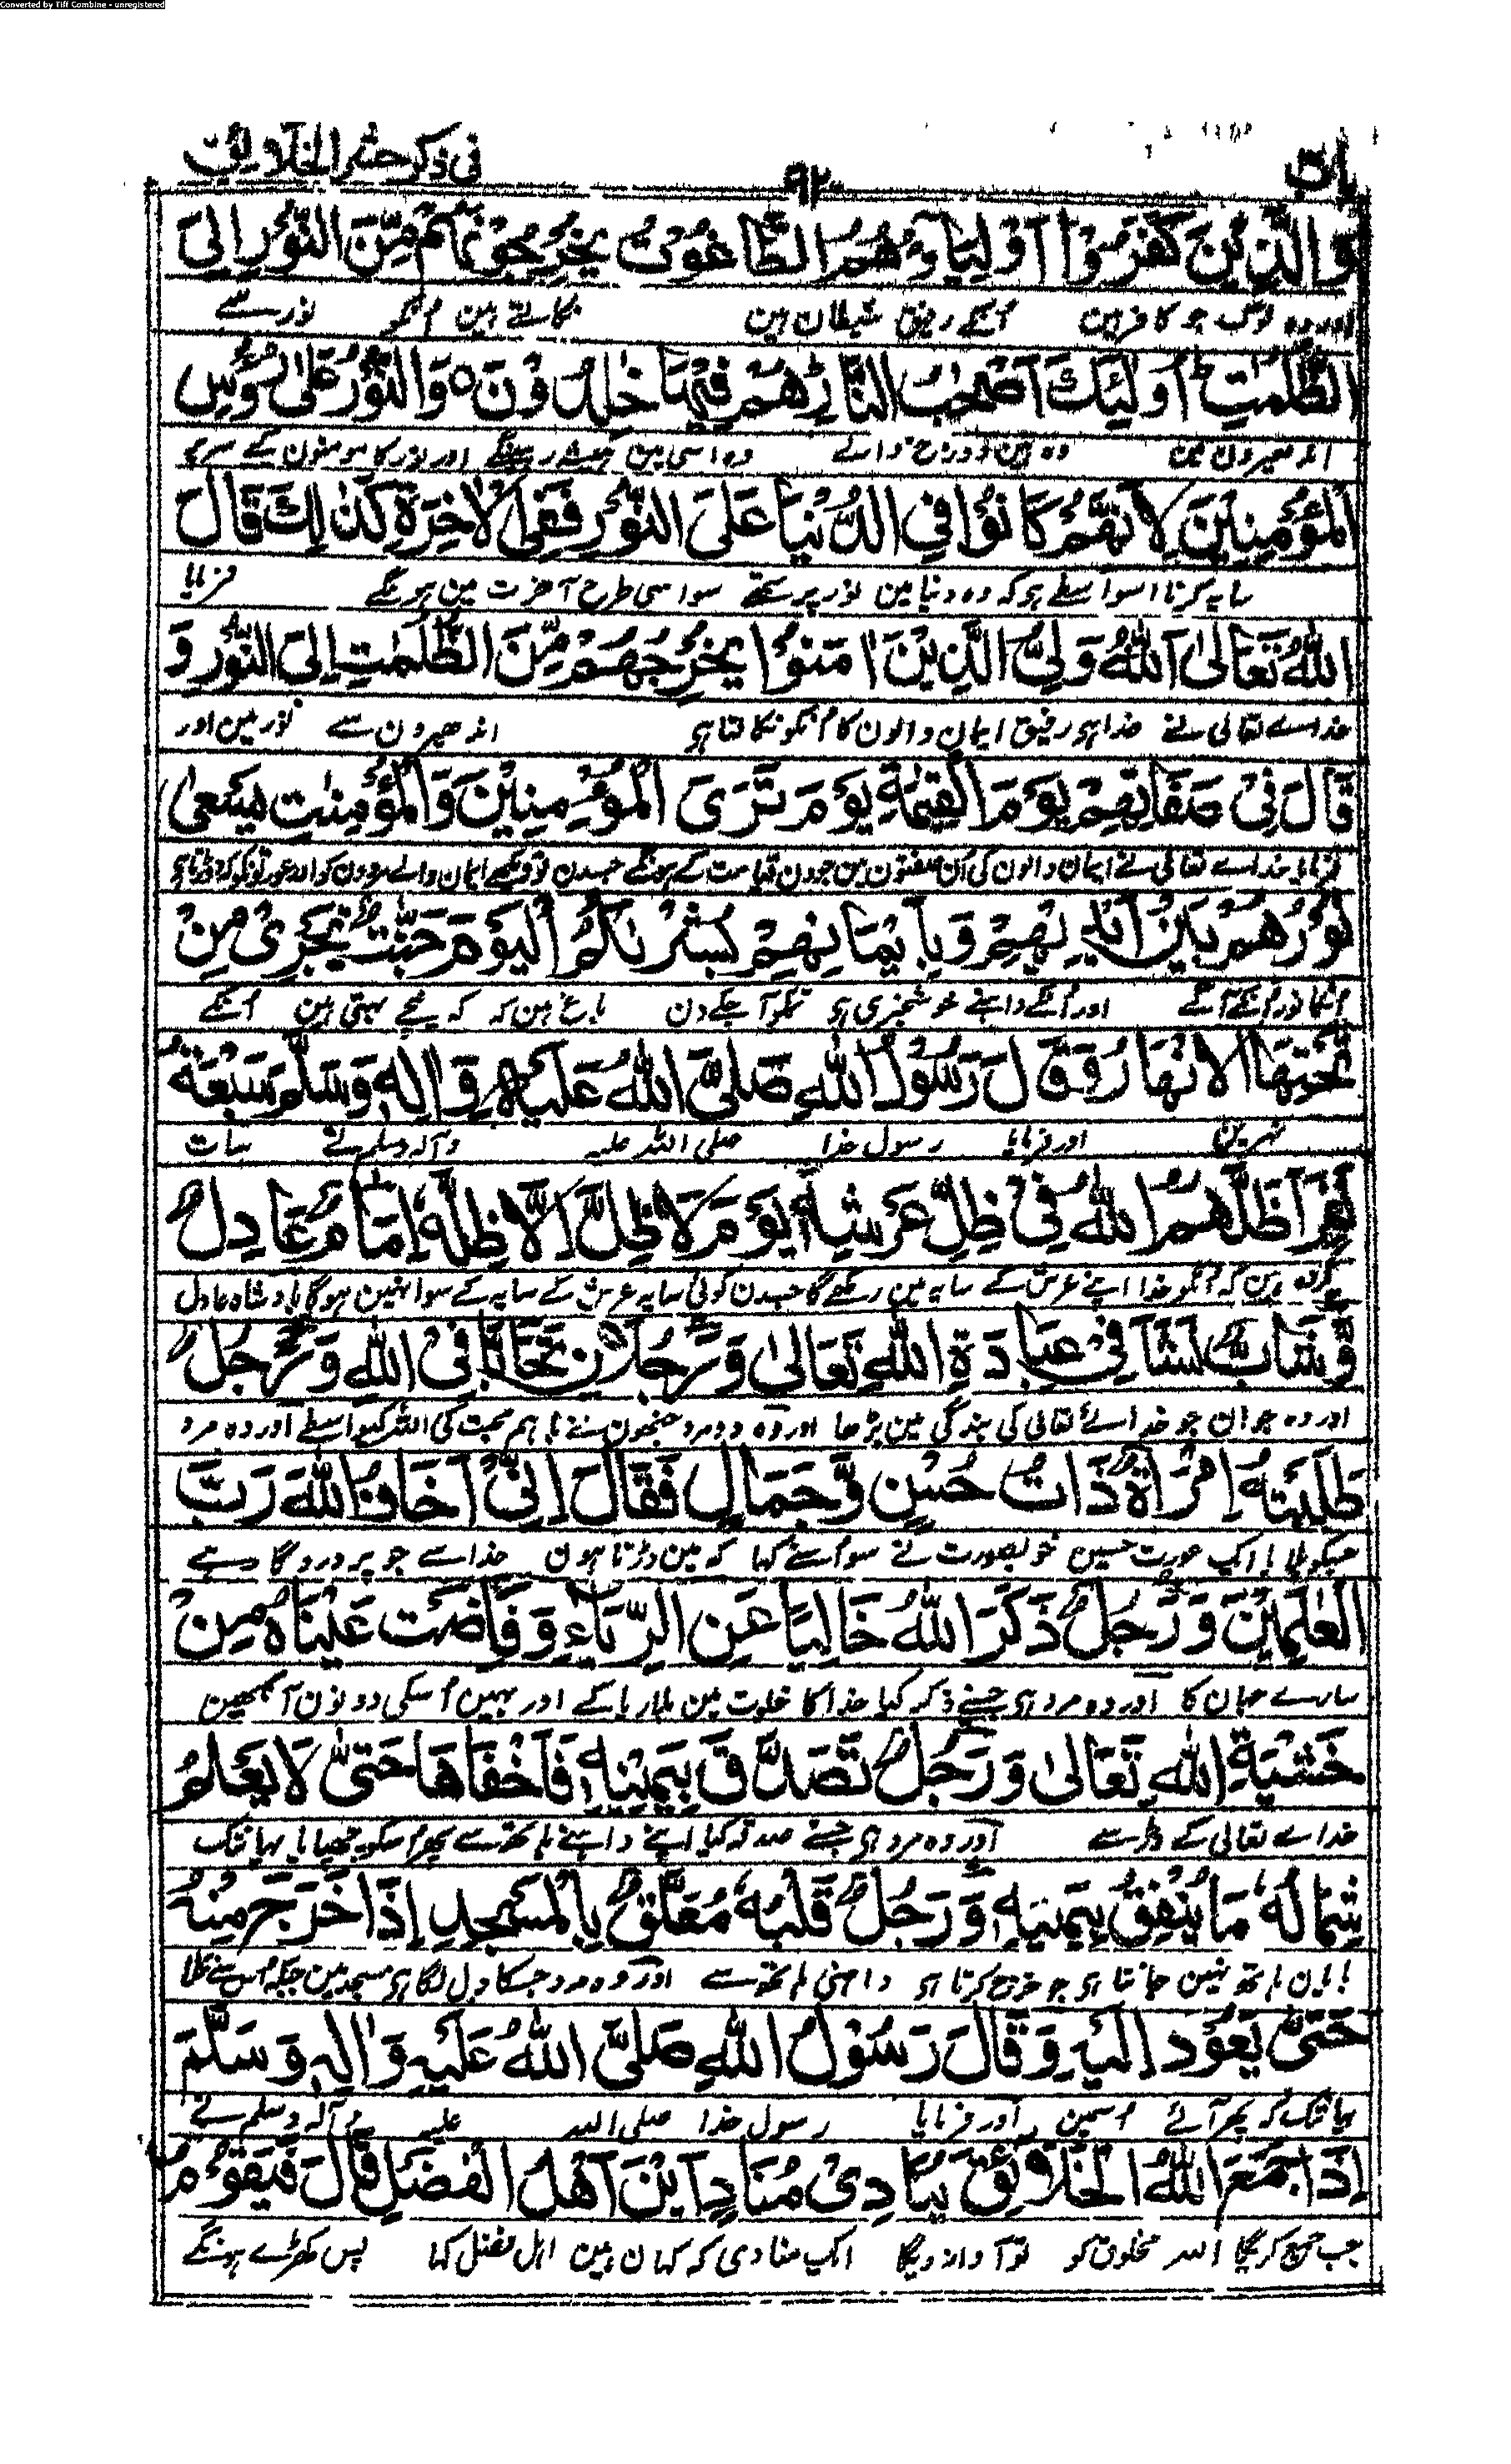 Converted by Tiff Combine - unregistered
باب ٩٢ فی ذکر حشر الخلائق
وَالَّذِیْنَ کَفَرُوْا اَوْلِیَآؤُهُمُ الطَّاغُوْتُ یُخْرِجُوْنَهُمْ مِّنَ النُّوْرِ اِلَی
اور وہ لوگ جو کافر ہین اُنکے رفیق شیطان ہین نکالتے ہین اُنکو نور سے
الظُّلُمٰتِ ط اُولٰٓئِكَ اَصْحٰبُ النَّارِ هُمْ فِیْهَا خٰلِدُوْنَ ٥ وَالنُّوْرُ عَلٰی رُءُوْسِ
اندھیرون مین وہ ہین دوزخ والے وہ اسی مین ہمیشہ رہینگے اور نور کا مومنون کے سر پر
الْمُؤْمِنِیْنَ لِاَنَّهُمْ کَانُوْا فِی الدُّنْیَا عَلَی النُّوْرِ فَفِی الْاٰخِرَةِ کَذٰلِكَ قَالَ
سایہ کرنا اسواسطے ہو کہ وہ دنیا مین نور پر تھے سو اسی طرح آخرت مین ہونگے فرمایا
اللّٰهُ تَعَالٰی اَللّٰهُ وَلِیُّ الَّذِیْنَ اٰمَنُوْا یُخْرِجُهُمْ مِّنَ الظُّلُمٰتِ اِلَی النُّوْرِ وَ
خداے تعالی نے خدا ہو رفیق ایمان والون کا اُنکو نکالتا ہو اندھیرون سے نور مین اور
قَالَ فِیْ صِفَاتِهِمْ یَوْمَ الْقِیٰمَةِ یَوْمَ تَرَی الْمُؤْمِنِیْنَ وَالْمُؤْمِنٰتِ یَسْعٰی
فرمایا خداے تعالی نے ایمان والون کی اُن صفتون مین جو دن قیامت کے ہونگے جسدن تو دیکھے ایمان والے مردون کو اور عورتونکو کہ دوڑتا ہو
نُوْرُهُمْ بَیْنَ اَیْدِیْهِمْ وَبِاَیْمَانِهِمْ بُشْرٰىکُمُ الْیَوْمَ جَنّٰتٌ تَجْرِیْ مِنْ
اُنکا نور اُنکے آگے اور اُنکے داہنے خوشخبری ہو تمکو آجکے دن باغ ہین کہ کہ نیچے بہتی ہین اُنکے
تَحْتِهَا الْاَنْهَارُ وَقَالَ رَسُوْلُ اللّٰهِ صَلَّی اللّٰهُ عَلَیْهِ وَاٰلِهٖ وَسَلَّمَ سَبْعَةُ
نہرین اور فرمایا رسول خدا صلی اللہ علیہ وآلہ وسلم نے سات
نَفَرٍ اَظَلَّهُمُ اللّٰهُ فِیْ ظِلِّ عَرْشِهٖ یَوْمَ لَا ظِلَّ اِلَّا ظِلُّهٗ اِمَامٌ عَادِلٌ
گروہ ہین کہ اُنکو خدا اپنے عرش کے سایہ مین رکھے گا جسدن کوئی سایہ عرش کے سایہ کے سوا نہین ہوگا بادشاہ عادل
وَّشَابٌّ نَشَاَ فِیْ عِبَادَةِ اللّٰهِ تَعَالٰی وَرَجُلَانِ تَحَابَّا فِی اللّٰهِ وَرَجُلٌ
اور وہ جوان جو خداے تعالی کی بندگی مین بڑھا اور وہ دو مرد جنھون نے باہم محبت کی اللہ کیواسطے اور وہ مرد
طَلَبَتْهُ اِمْرَاَةٌ ذَاتُ حُسْنٍ وَّجَمَالٍ فَقَالَ اِنِّیْ اَخَافُ اللّٰهَ رَبَّ
جسکو بلایا ایک عورت حسین خوبصورت نے سو اُسنے کہا کہ مین ڈرتا ہون خدا سے جو پروردگار ہے
الْعٰلَمِیْنَ وَرَجُلٌ ذَکَرَ اللّٰهَ خَالِیًا عَنِ الرِّیَاءِ وَفَاضَتْ عَیْنَاهُ مِنْ
سارے جہان کا اور وہ مرد ہو جسنے ذکر کیا خدا کا خلوت مین بلا ریا کے اور بہین اُسکی دونون آنکھین
خَشْیَةِ اللّٰهِ تَعَالٰی وَرَجُلٌ تَصَدَّقَ بِیَمِیْنِهٖ فَاَخْفَاهَا حَتّٰی لَا یَعْلَمَ
خداے تعالی کے ڈر سے اور وہ مرد ہو جسنے صدقہ کیا اپنے داہنے ہاتھ سے پھر اُسکو چھپایا یہانتک
شِمَالُهٗ مَا یُنْفِقُ بِیَمِیْنِهٖ وَرَجُلٌ قَلْبُهٗ مُعَلَّقٌ بِالْمَسْجِدِ اِذَا خَرَجَ مِنْهُ
بایان ہاتھ نہین جانتا ہو جو خرچ کرتا ہو داہنی ہاتھ سے اور وہ مرد جسکا دل لگا ہو مسجد مین جبکہ اُس سے نکلا
حَتّٰی یَعُوْدَ اِلَیْهِ وَقَالَ رَسُوْلُ اللّٰهِ صَلَّی اللّٰهُ عَلَیْهِ وَاٰلِهٖ وَسَلَّمَ
یہانتک کہ پھر آئے اُسمین اور فرمایا رسول خدا صلی اللہ علیہ وآلہ وسلم نے
اِذَا جَمَعَ اللّٰهُ الْخَلَائِقَ یُنَادِیْ مُنَادٍ اَیْنَ اَهْلُ الْفَضْلِ قَالَ فَیَقُوْمُ
جب جمع کریگا اللہ مخلوق کو تو آواز دیگا ایک منادی کہ کہان ہین اہل فضل کہا پس کھڑے ہونگے